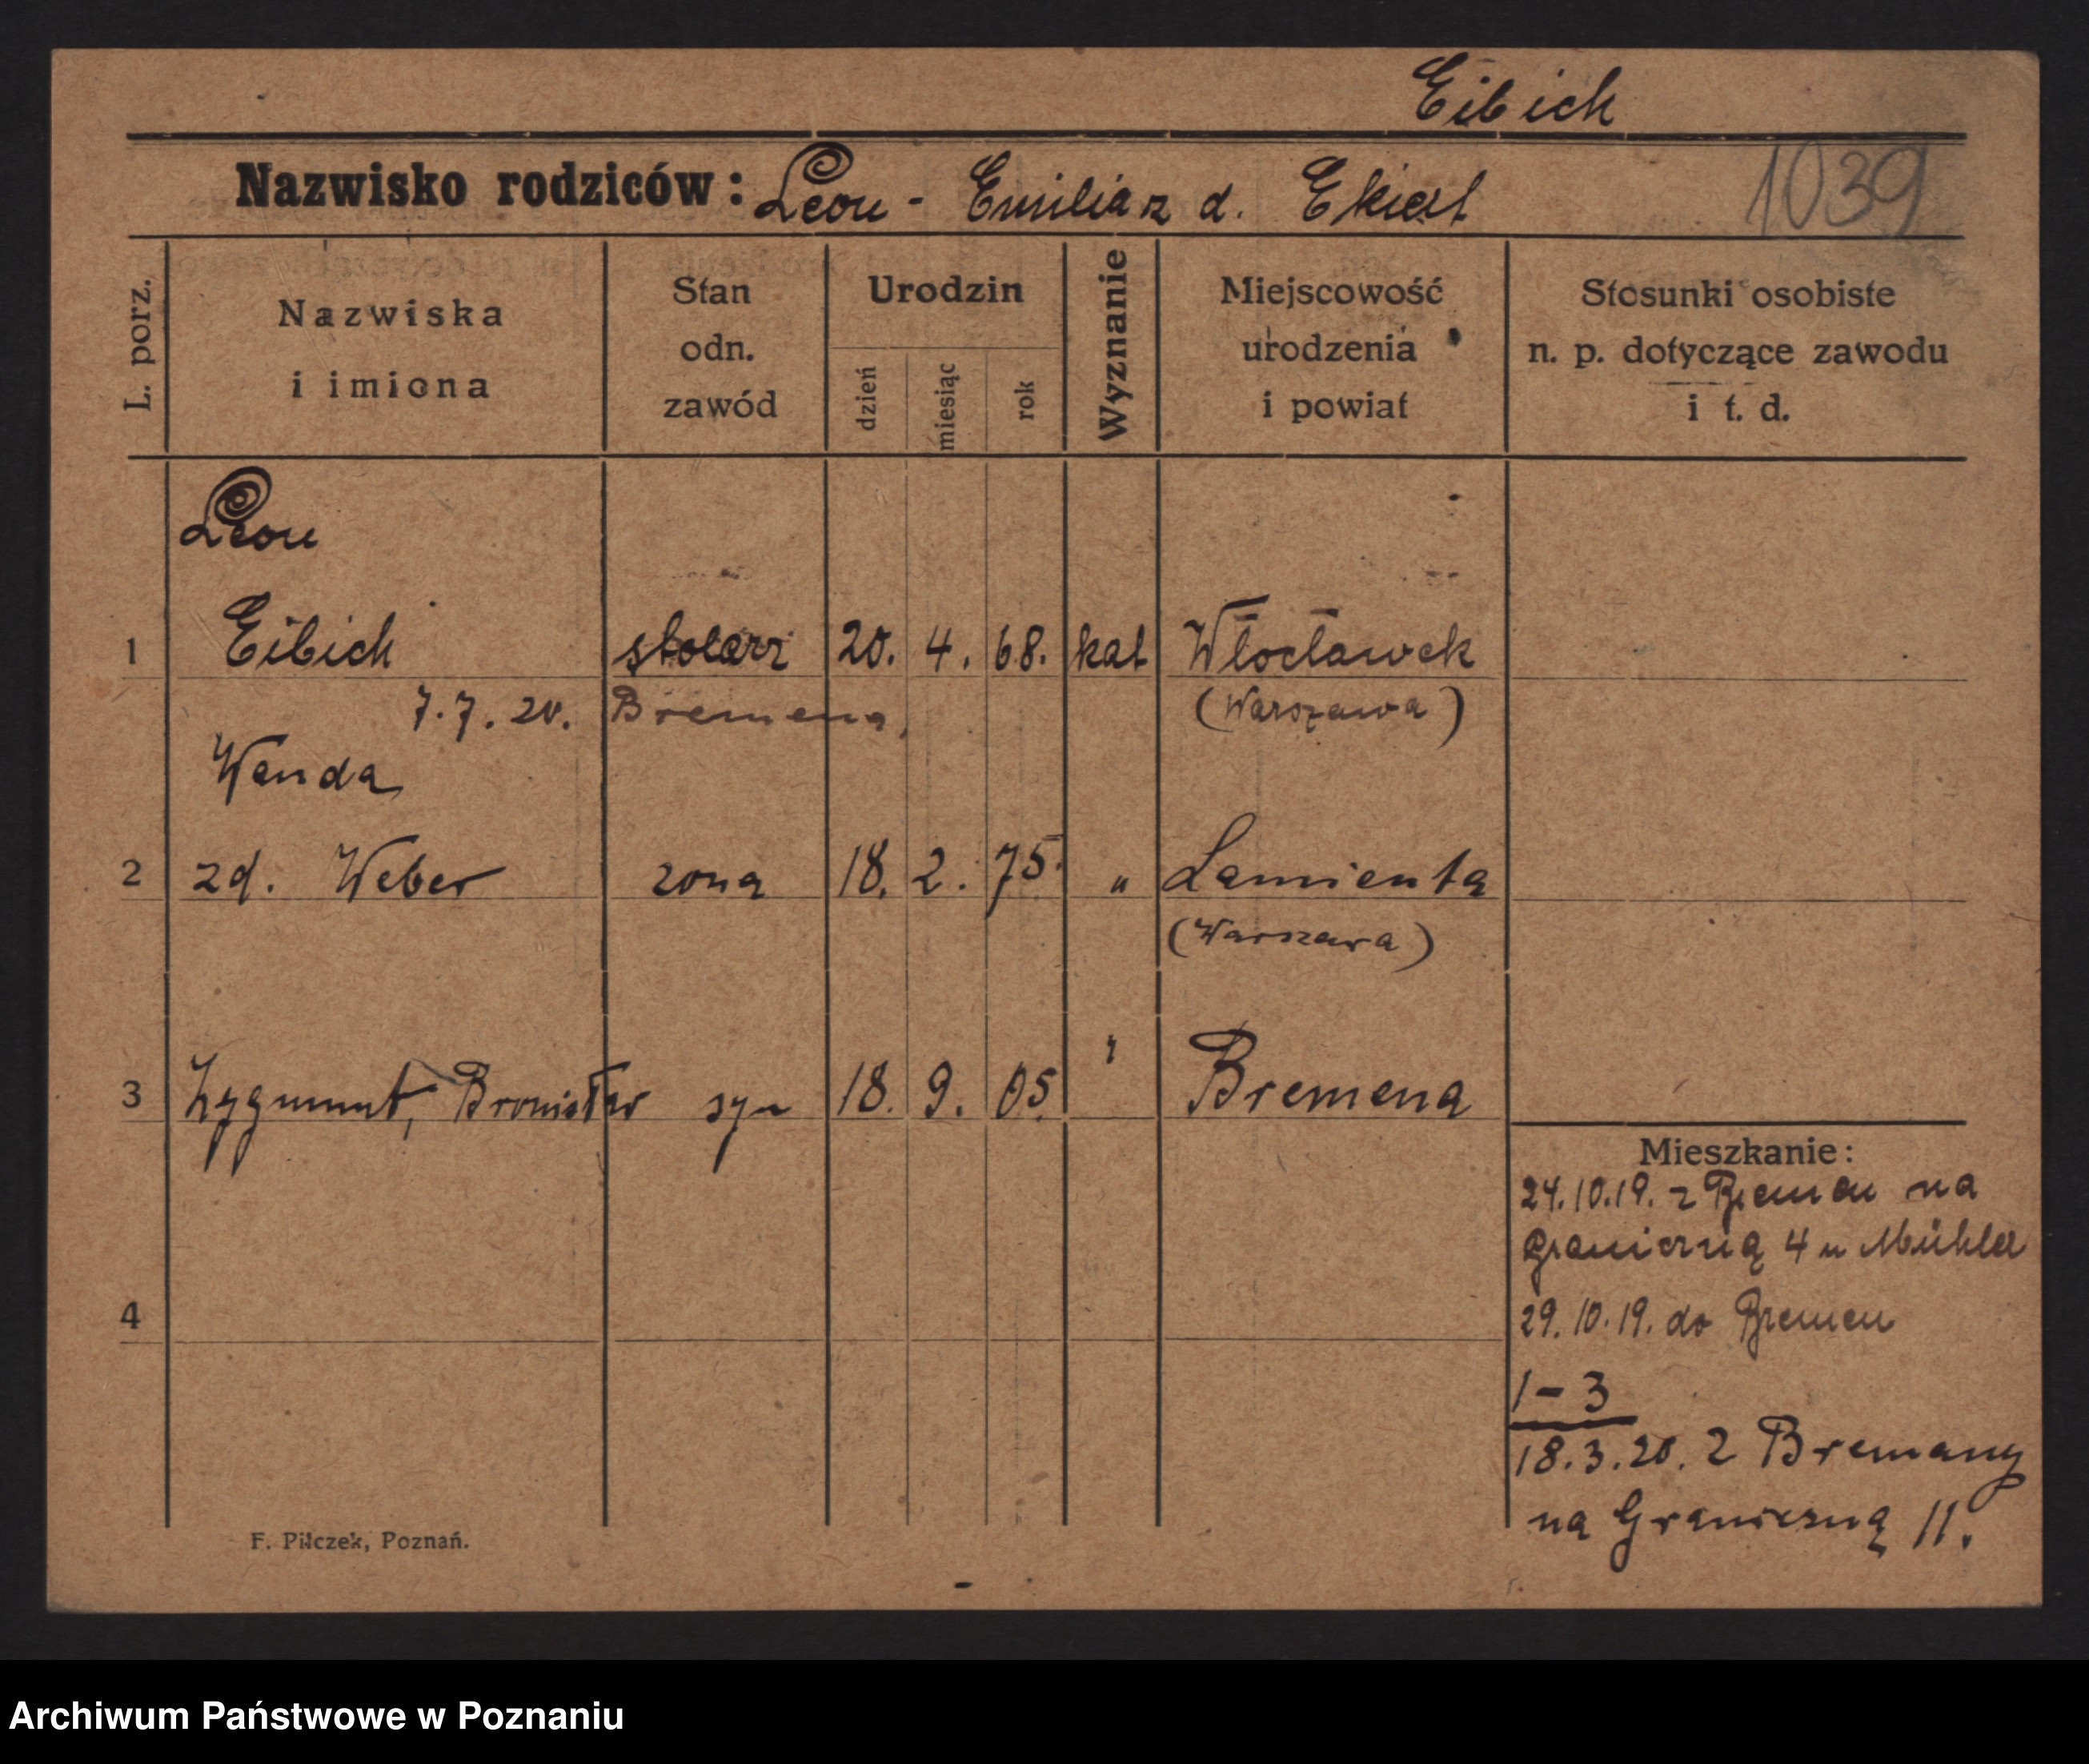 Eibich
Nazwisko rodziców: Leon - Emilia z d. Ekiert
1039
L. porz.
Nazwiska
i imiona
Stan
odn.
zawód
Urodzin
dzień
miesiąc
rok
Wyznanie
Miejscowość
urodzenia
i powiat
Stosunki osobiste
n. p. dotyczące zawodu
i t. d.
Leon
1 Eibich stolarz 20. 4. 68. kat Włocławek
7.7.20. Bremena, (Warszawa)
Wanda
2 zd. Weber zona 18. 2. 75. " Lamienta
(Warszawa)
3 Zygmunt, Bronisław syn 18. 9. 05. " Bremena
Mieszkanie:
24.10.19. z Bremen na
Graniczną 4 u Mühler
4
29.10.19. do Bremen
1-3
18.3.20. z Bremany
na Graniczną 11.
F. Pilczek, Poznań.
Archiwum Państwowe w Poznaniu